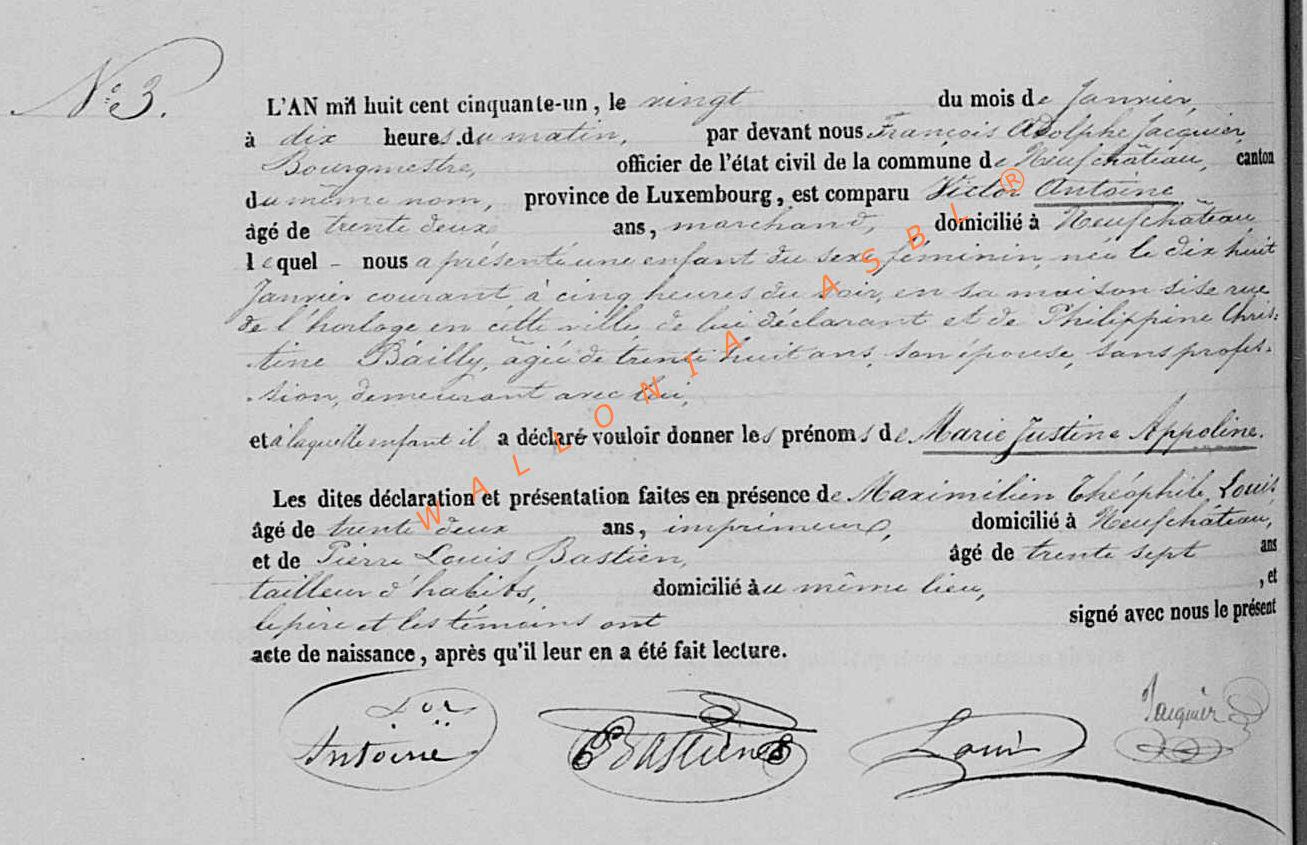 N° 3.
L'AN mil huit cent cinquante-un, le vingt du mois de Janvier,
à dix heures du matin, par devant nous François Adolphe Jacquier,
Bourgmestre, officier de l'état civil de la commune de Neufchâteau, canton
du même nom, province de Luxembourg, est comparu Victor Antoine
âgé de trente deux ans, marchand, domicilié à Neufchâteau
lequel - nous a présenté une enfant du sexe féminin, née le dix huit
Janvier courant à cinq heures du soir, en sa maison sise rue
de l'horloge en cette ville, de lui déclarant et de Philippine Chris-
tine Bailly, âgée de trente huit ans, son épouse, sans profes-
sion, demeurant avec lui,
et à laquelle enfant il a déclaré vouloir donner les prénoms de Marie Justine Appoline.
Les dites déclaration et présentation faites en présence de Maximilien Théophile Louis,
âgé de trente deux ans, imprimeur, domicilié à Neufchâteau,
et de Pierre Louis Bastien, âgé de trente sept ans
tailleur d'habits, domicilié au même lieu, , et
le père et les témoins ont signé avec nous le présent
acte de naissance, après qu'il leur en a été fait lecture.
Antoine
Bastien
Louis
Jacquier
WALLONIA ASBL ®